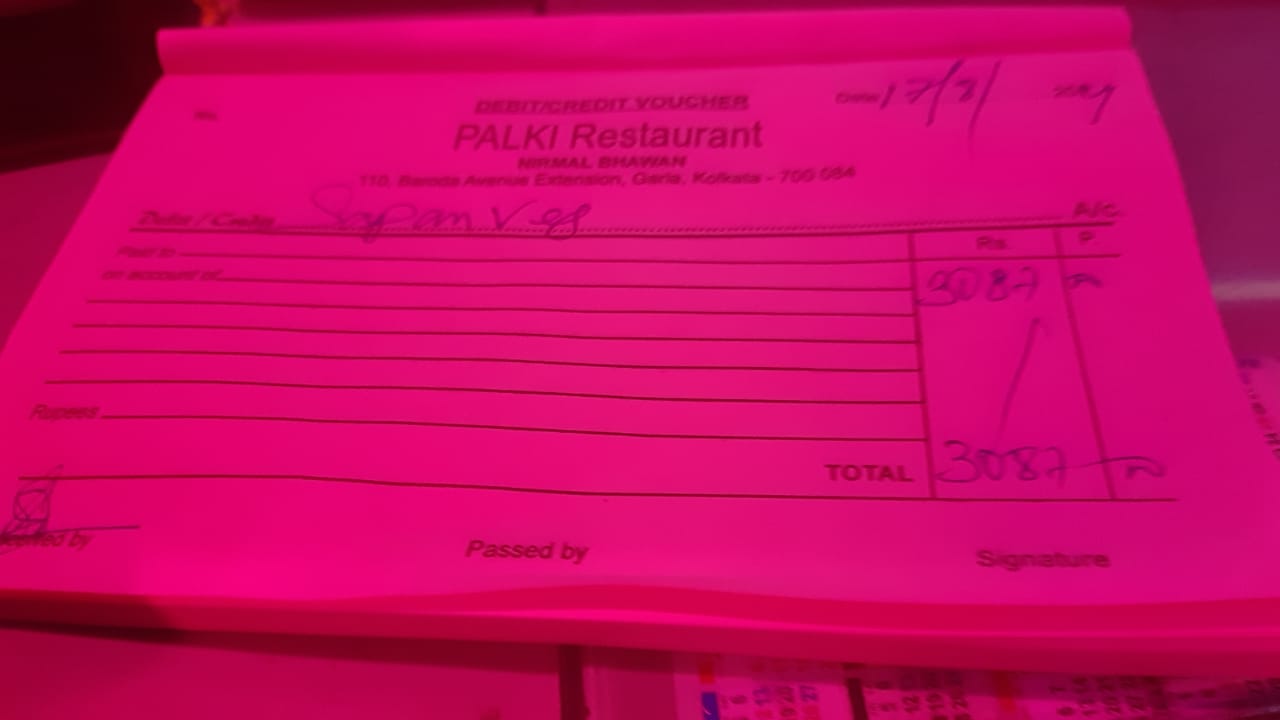 No.
DEBIT/CREDIT VOUCHER
Date 17/8/
PALKI Restaurant
NIRMAL BHAWAN
110, Baroda Avenue Extension, Garia, Kolkata - 700 084
Debit / Credit Sapan Veg A/c.
Rs. P.
Paid to
on account of 3087
Rupees
TOTAL 3087
Received by
Passed by
Signature